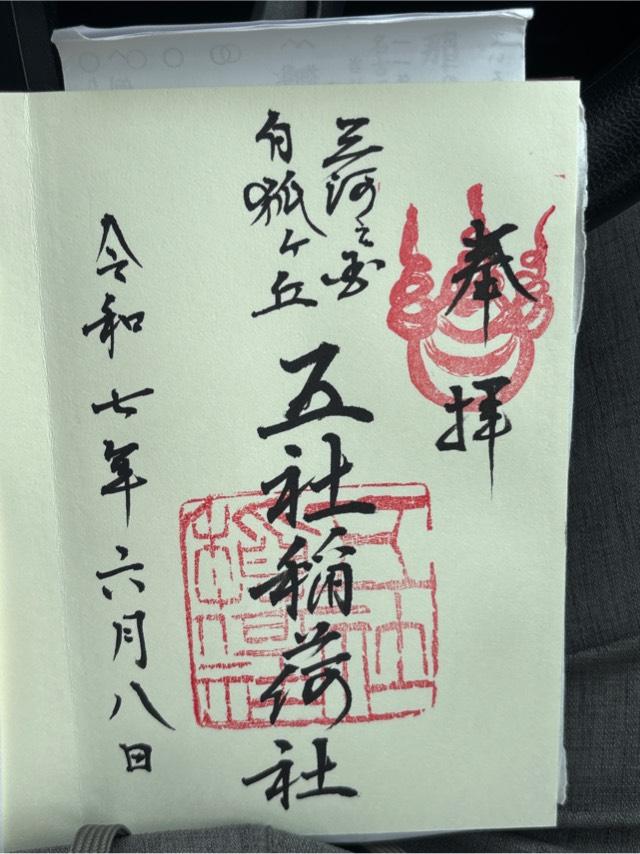 奉拝
三河之国
白狐ヶ丘
五社稲荷社
令和七年六月八日